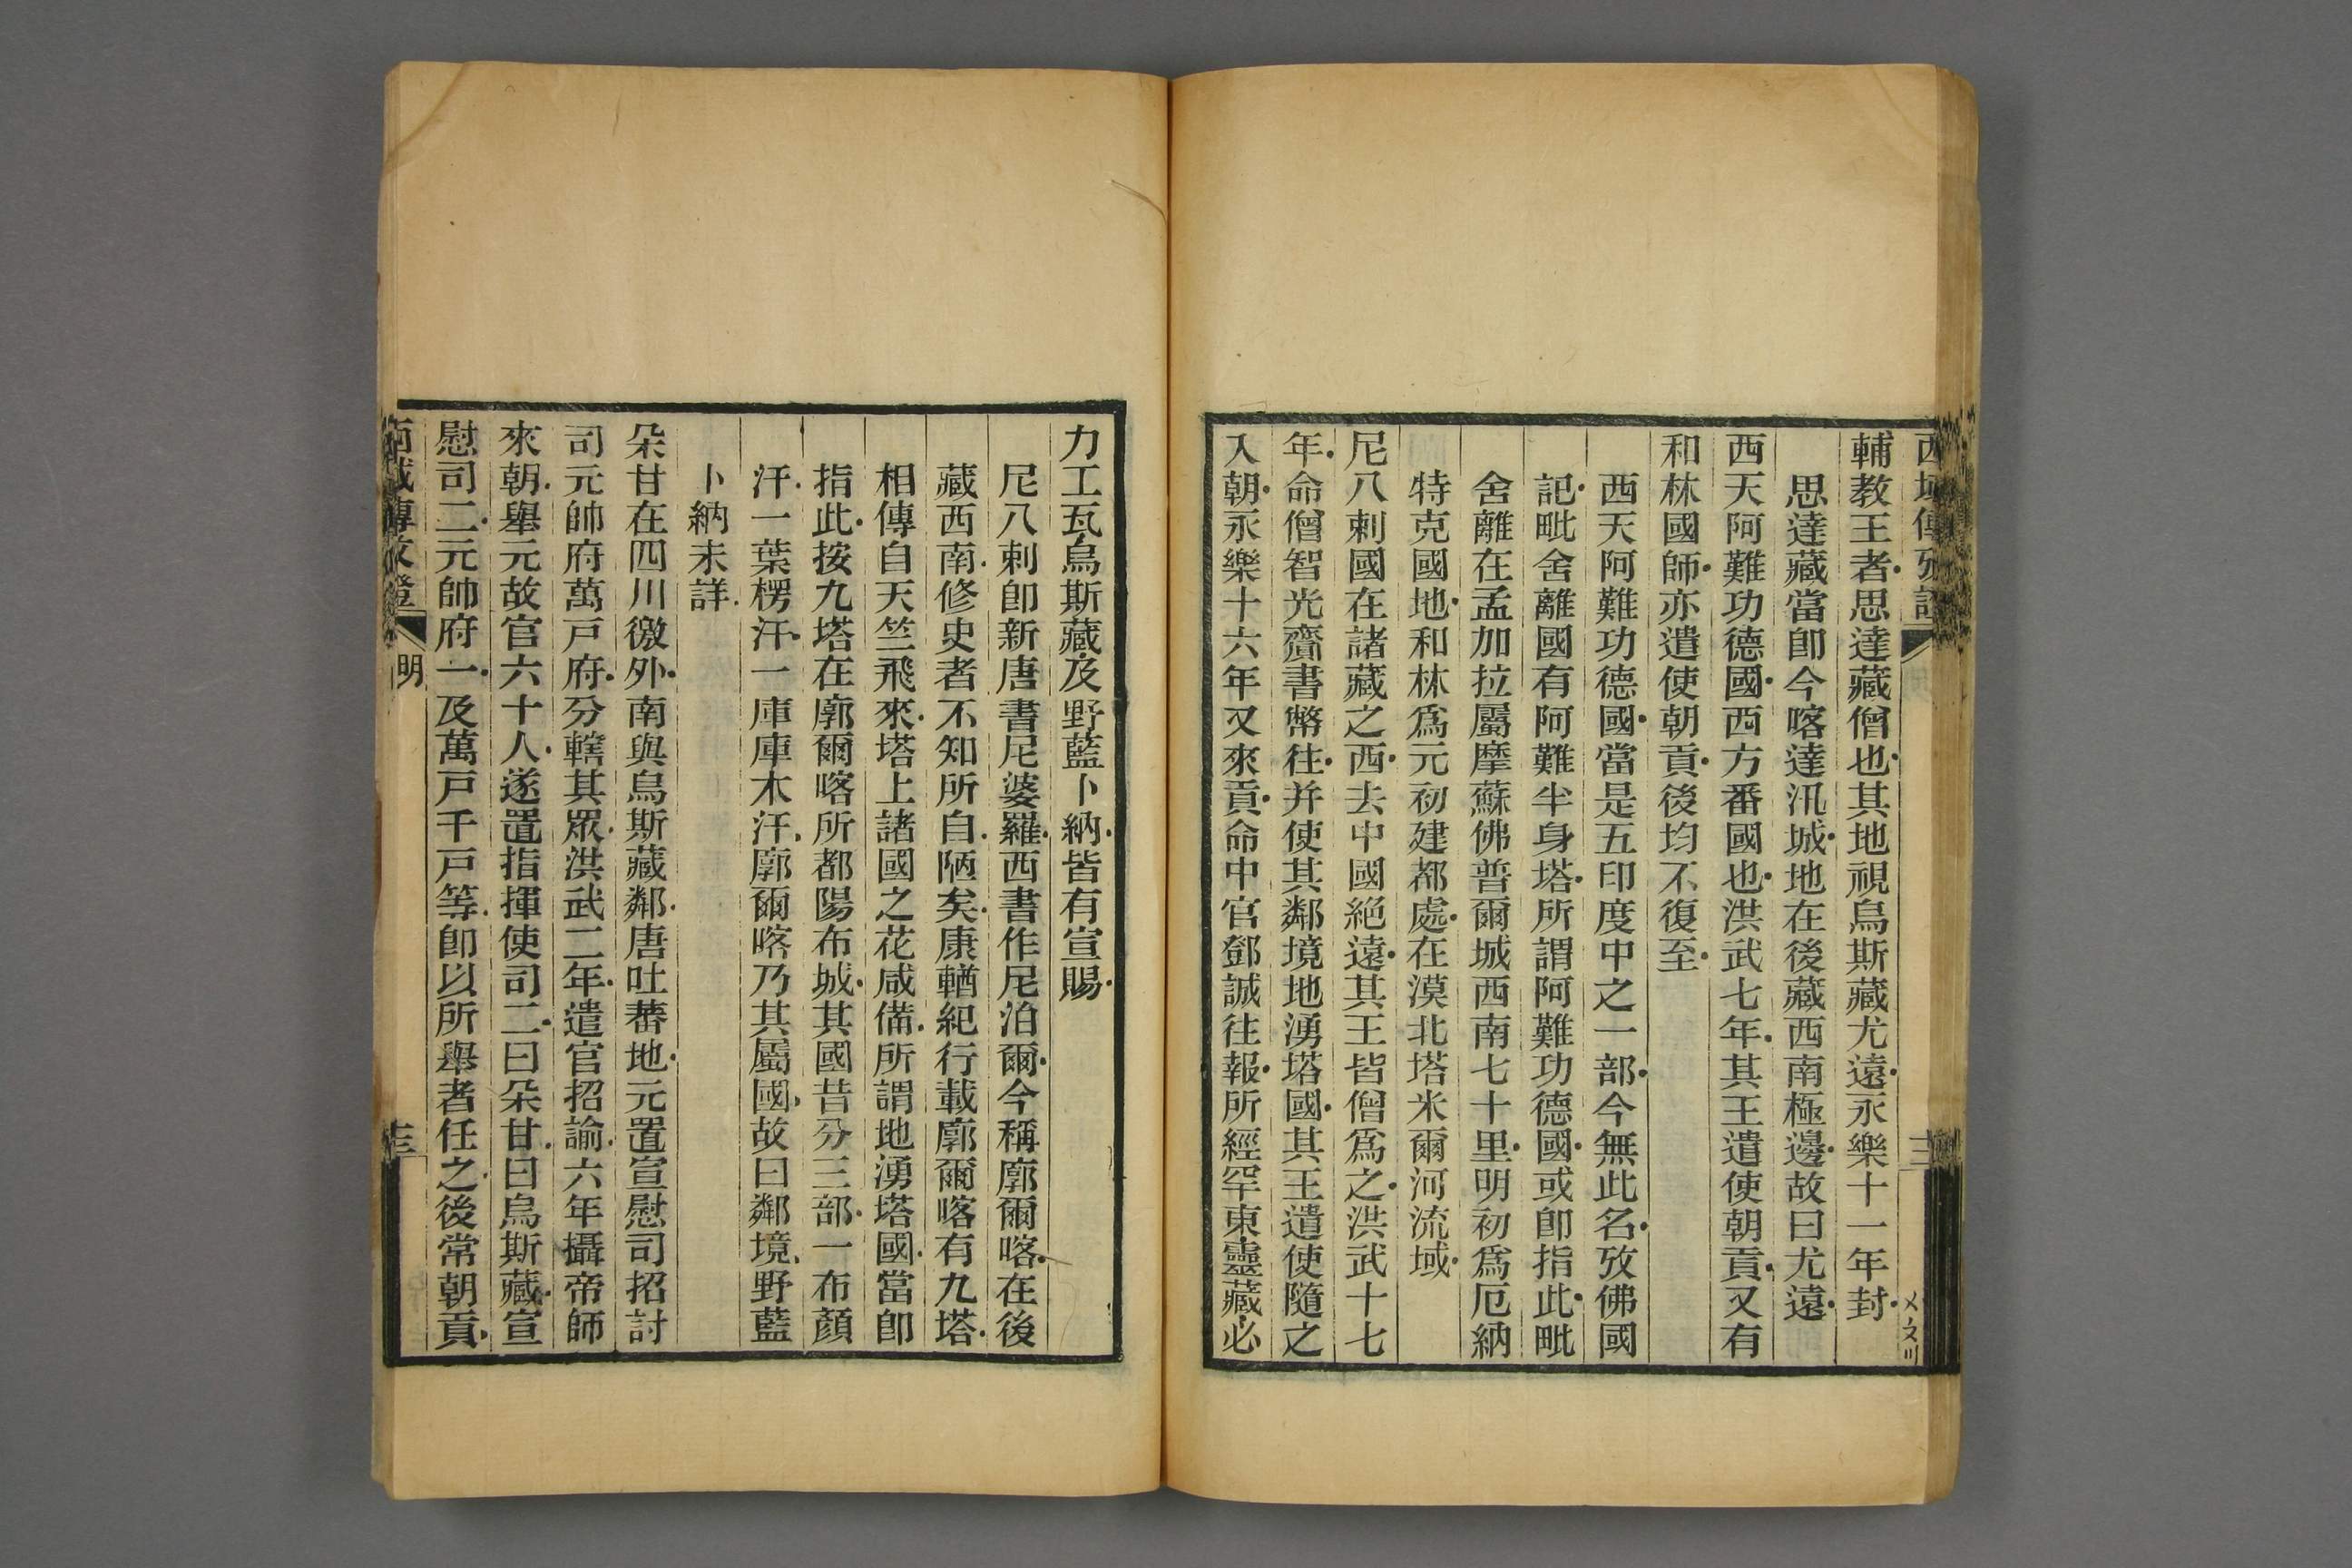 西域傳攷證
三
輔教王者思達藏僧也其地視烏斯藏尤遠永樂十一年封
思達藏當卽今喀達汛城地在後藏西南極邊故曰尤遠
西天阿難功德國西方番國也洪武七年其王遣使朝貢又有
和林國師亦遣使朝貢後均不復至
西天阿難功德國當是五印度中之一部今無此名攷佛國
記毗舍離國有阿難半身塔所謂阿難功德國或卽指此毗
舍離在孟加拉屬摩蘇佛普爾城西南七十里明初爲厄納
特克國地和林爲元初建都處在漠北塔米爾河流域
尼八剌國在諸藏之西去中國絕遠其王皆僧爲之洪武十七
年命僧智光齎書幣往并使其鄰境地湧塔國其王遣使隨之
入朝永樂十六年又來貢命中官鄧誠往報所經罕東靈藏必
力工瓦烏斯藏及野藍卜納皆有宣賜
尼八剌卽新唐書尼婆羅西書作尼泊爾今稱廓爾喀在後
藏西南修史者不知所自陋矣康輶紀行載廓爾喀有九塔
相傳自天竺飛來塔上諸國之花咸備所謂地湧塔國當卽
指此按九塔在廓爾喀所都陽布城其國昔分三部一布顏
汗一葉楞汗一庫庫木汗廓爾喀乃其屬國故曰鄰境野藍
卜納未詳
朵甘在四川徼外南與烏斯藏鄰唐吐蕃地元置宣慰司招討
司元帥府萬戸府分轄其眾洪武二年遣官招諭六年攝帝師
來朝舉元故官六十人遂置指揮使司二曰朵甘曰烏斯藏宣
慰司二元帥府一及萬戸千戸等卽以所舉者任之後常朝貢
西域傳攷證
明